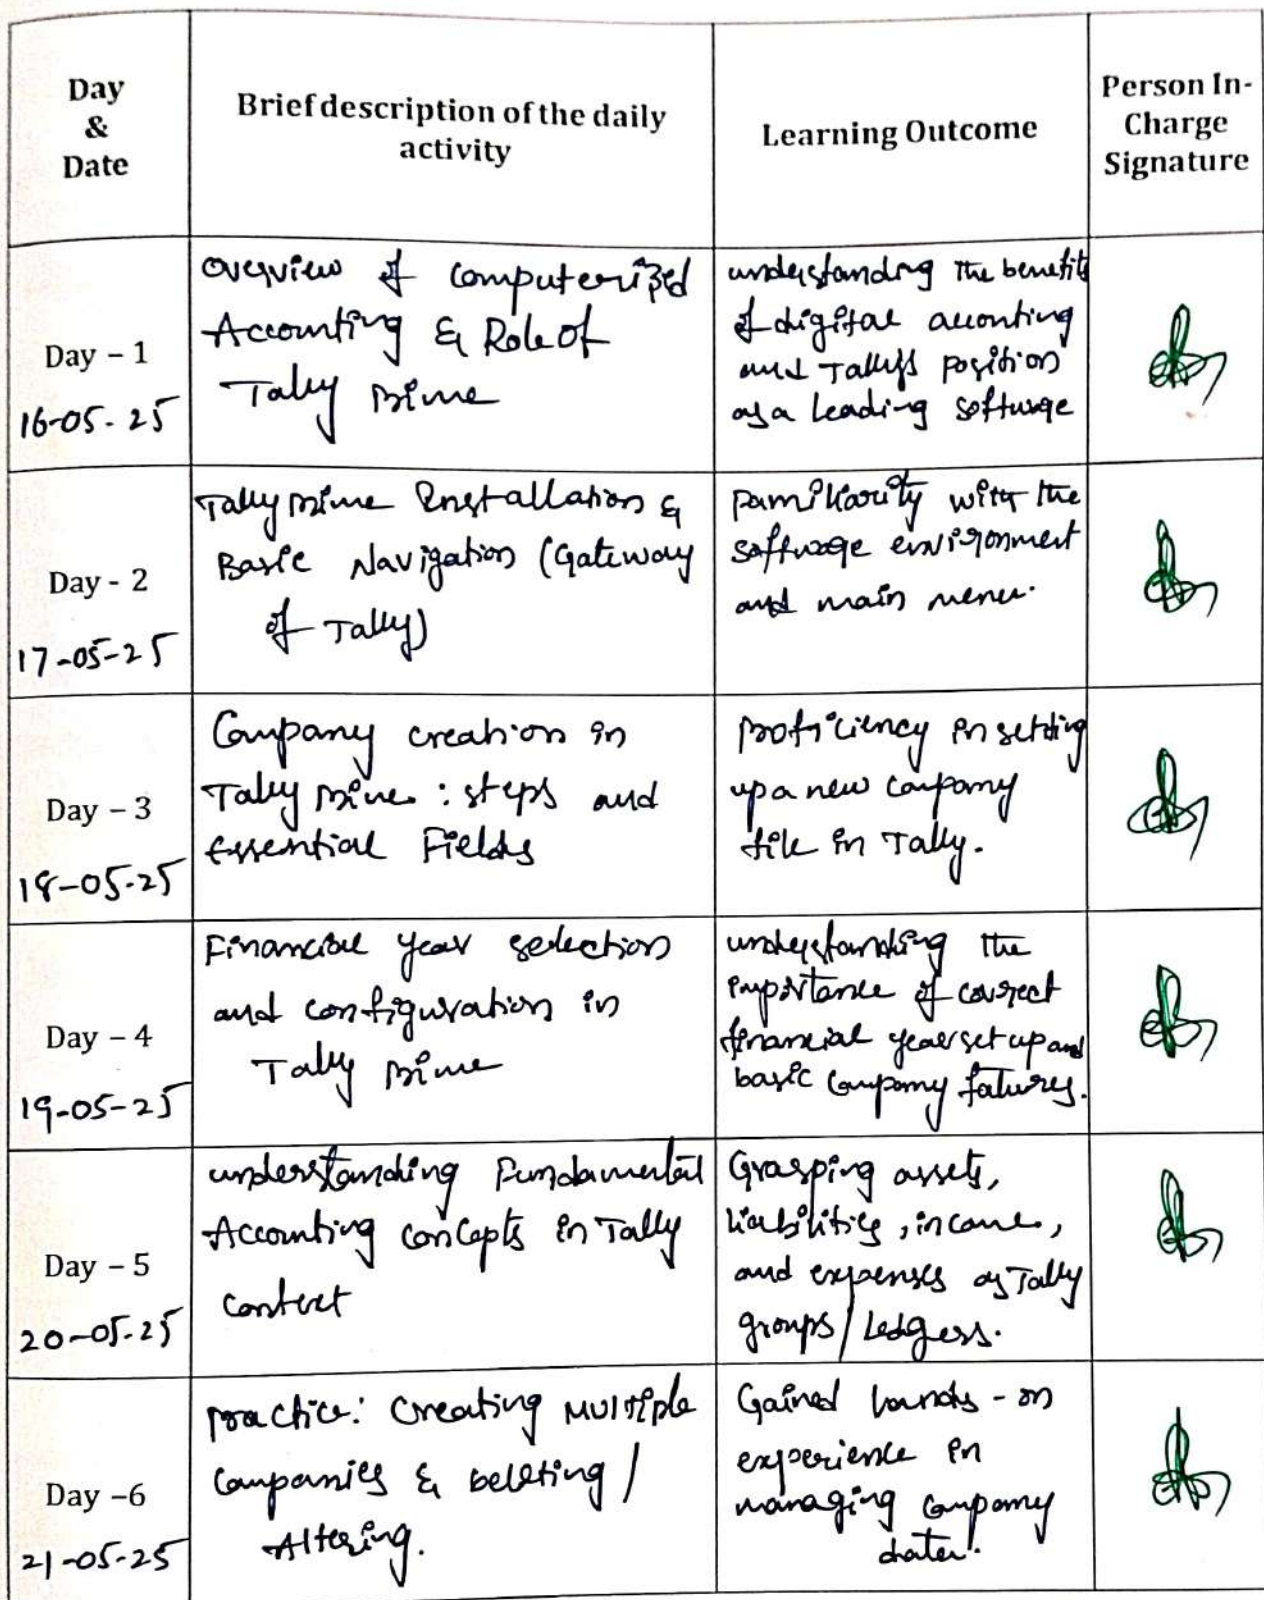 Day
&
Date
Brief description of the daily
activity
Learning Outcome
Person In-
Charge
Signature
Day – 1
16-05-25
overview of computerized
Accounting & Role of
Tally prime
understanding the benefits
of digital accounting
and Tally's position
as a leading software
Day - 2
17-05-25
Tally prime Installation &
Basic Navigation (Gateway
of Tally)
Familiarity with the
software environment
and main menu.
Day – 3
18-05-25
Company creation in
Tally prime : steps and
Essential Fields
proficiency in setting
up a new company
file in Tally.
Day – 4
19-05-25
Financial year selection
and configuration in
Tally prime
understanding the
importance of correct
financial year set up and
basic company fatures.
Day – 5
20-05-25
understanding Fundamental
Accounting concepts in Tally
context
Grasping assets,
liabilities, income,
and expenses as Tally
groups / Ledgers.
Day –6
21-05-25
practice: Creating Multiple
Companies & Deleting /
Altering.
Gained hands - on
experience in
managing company
data.